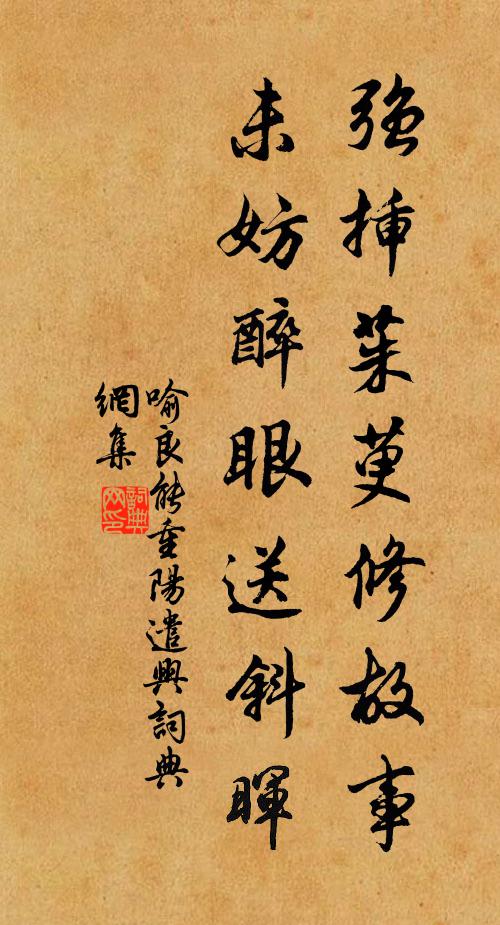 強揷茱萸修故事
未妨醉眼送斜暉
喻良能重陽遣興詞典
網集
詞典
网印